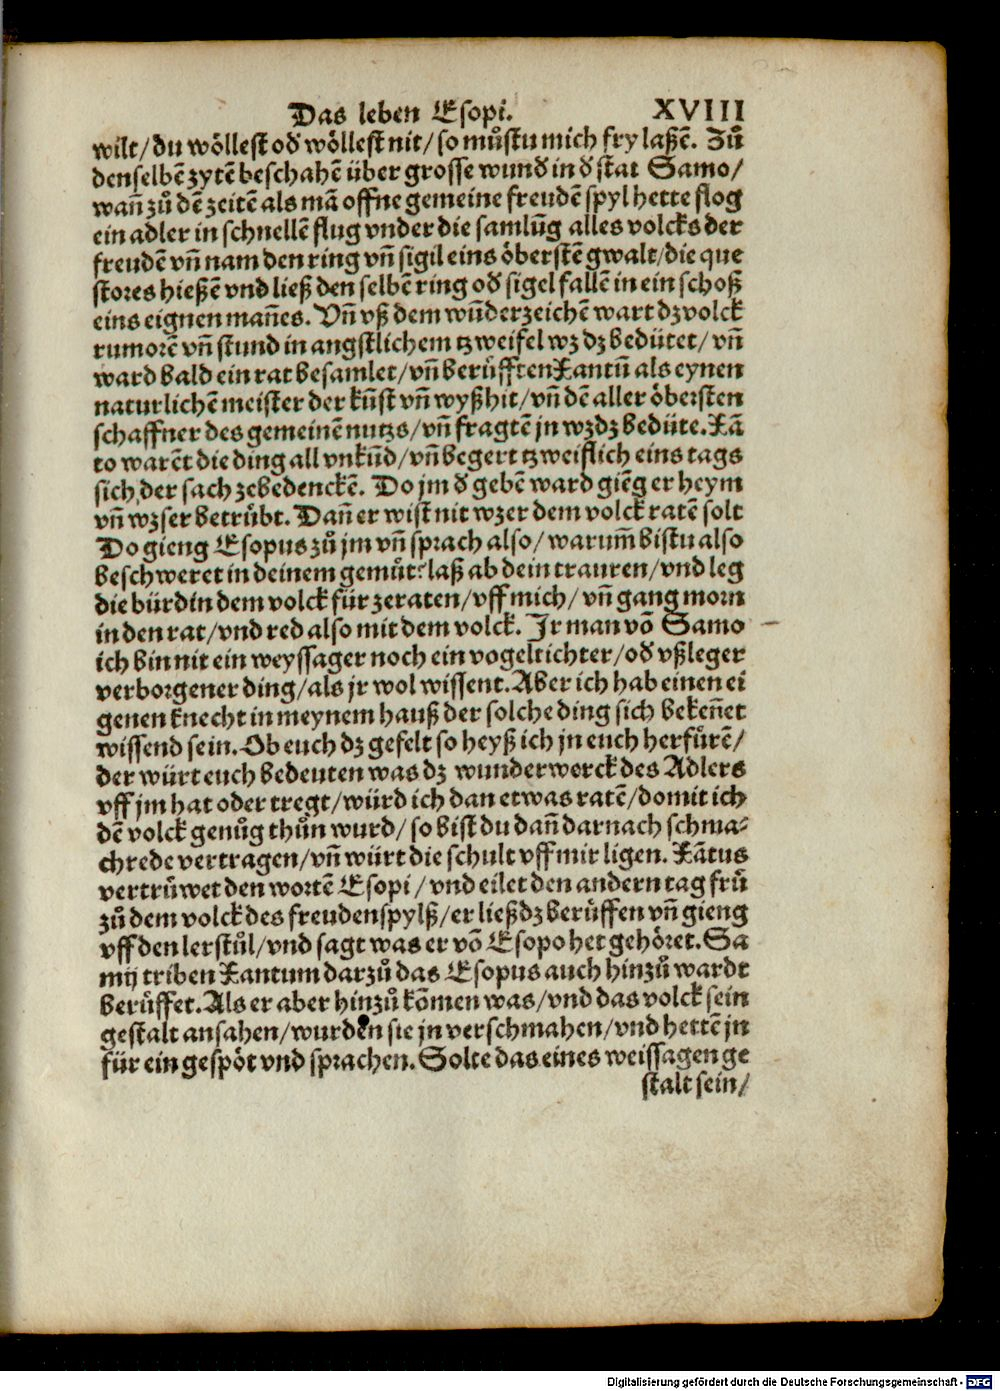 Das leben Esopi. XVIII
wilt/ du wöllest od̕ wöllest nit/ so můstu mich fry laßē. Zů
denselbē zytē beschahē über grosse wund̕ in d̕ stat Samo/
wañ zů dē zeitē als mā offne gemeine freudē spyl hette flog
ein adler in schnellē flug vnder die samlūg alles volcks der
freudē vñ nam den ring vñ sigil eins öberstē gwalt/ die que
stores hießē vnd ließ den selbē ring od̕ sigel fallē in ein schoß
eins eignen mañes. Vñ vß dem wūderzeichē wart dz volck
rumorē vñ stund in angstlichem tzweifel wz dz bedütet/ vñ
ward bald ein rat besamlet/ vñ berůfften Xantū als eynen
naturlichē meister der kūst vñ wyßhit/ vñ dē aller öbersten
schaffner des gemeinē nutzs/ vñ fragtē jn wz dz bedüte. Xā
to warēt die ding all vnkūd/ vñ begert tzweiflich eins tags
sich der sach zebedenckē. Do jm d̕ gebē ward giēg er heym
vñ wz ser betrůbt. Dañ er wist nit wz er dem volck ratē solt
Do gieng Esopus zů jm vñ sprach also/ warum̄ bistu also
beschweret in deinem gemůt? laß ab dein trauren/ vnd leg
die bürd in dem volck für zeraten/ vff mich/ vñ gang morn
in den rat/ vnd red also mit dem volck. Ir man vō Samo
ich bin nit ein weyssager noch ein vogeltichter/ od̕ vßleger
verborgener ding/ als jr wol wissent. Aber ich hab einen ei
genen knecht in meynem hauß der solche ding sich bekeñet
wissend sein. Ob euch dz gefelt so heyß ich jn euch herfůrē/
der würt euch bedeuten was dz wunderwerck des Adlers
vff jm hat oder tregt/ würd ich dan etwas ratē/ domit ich
dē volck genůg thůn wurd/ so bist du dañ darnach schma⸗
chrede vertragen/ vñ würt die schult vff mir ligen. Xātus
vertrůwet den wortē Esopi/ vnd eilet den andern tag frů
zů dem volck des freudenspylß/ er ließ dz berůffen vñ gieng
vff den lerstůl/ vnd sagt was er vō Esopo het gehöret. Sa
mij triben Xantum darzů das Esopus auch hinzů wardt
berůffet. Als er aber hinzů kōmen was/ vnd das volck sein
gestalt ansahen/ wurden sie jn verschmahen/ vnd hettē jn
für ein gespöt vnd sprachen. Solte das eines weissagen ge
stalt sein/
Digitalisierung gefördert durch die Deutsche Forschungsgemeinschaft - DFG